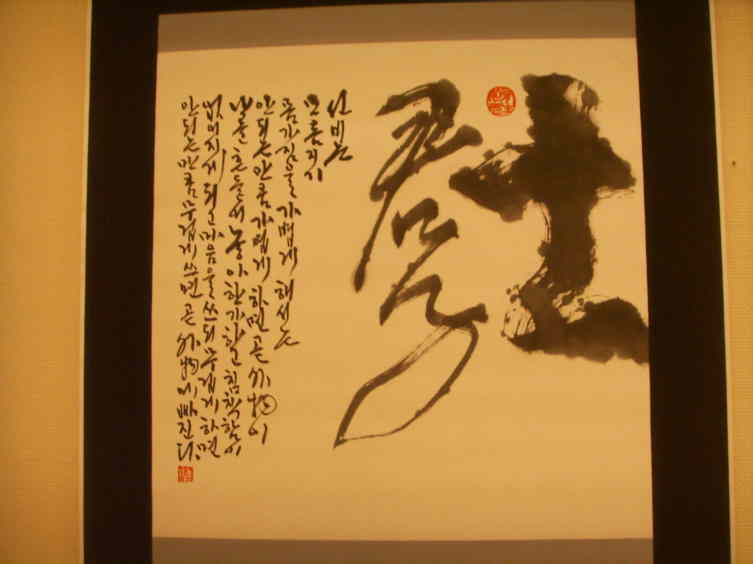 士
君子
선비는
모름지기
몸가짐을 가볍게 해서는
안되는만큼 가볍게 하면 곧 外物이
놓아 한가하고 침착함이
없어지게 되고 마음을 쓰되 무겁게 하면
안되는만큼 무겁게 쓰면 곧 外物에 빠진다.